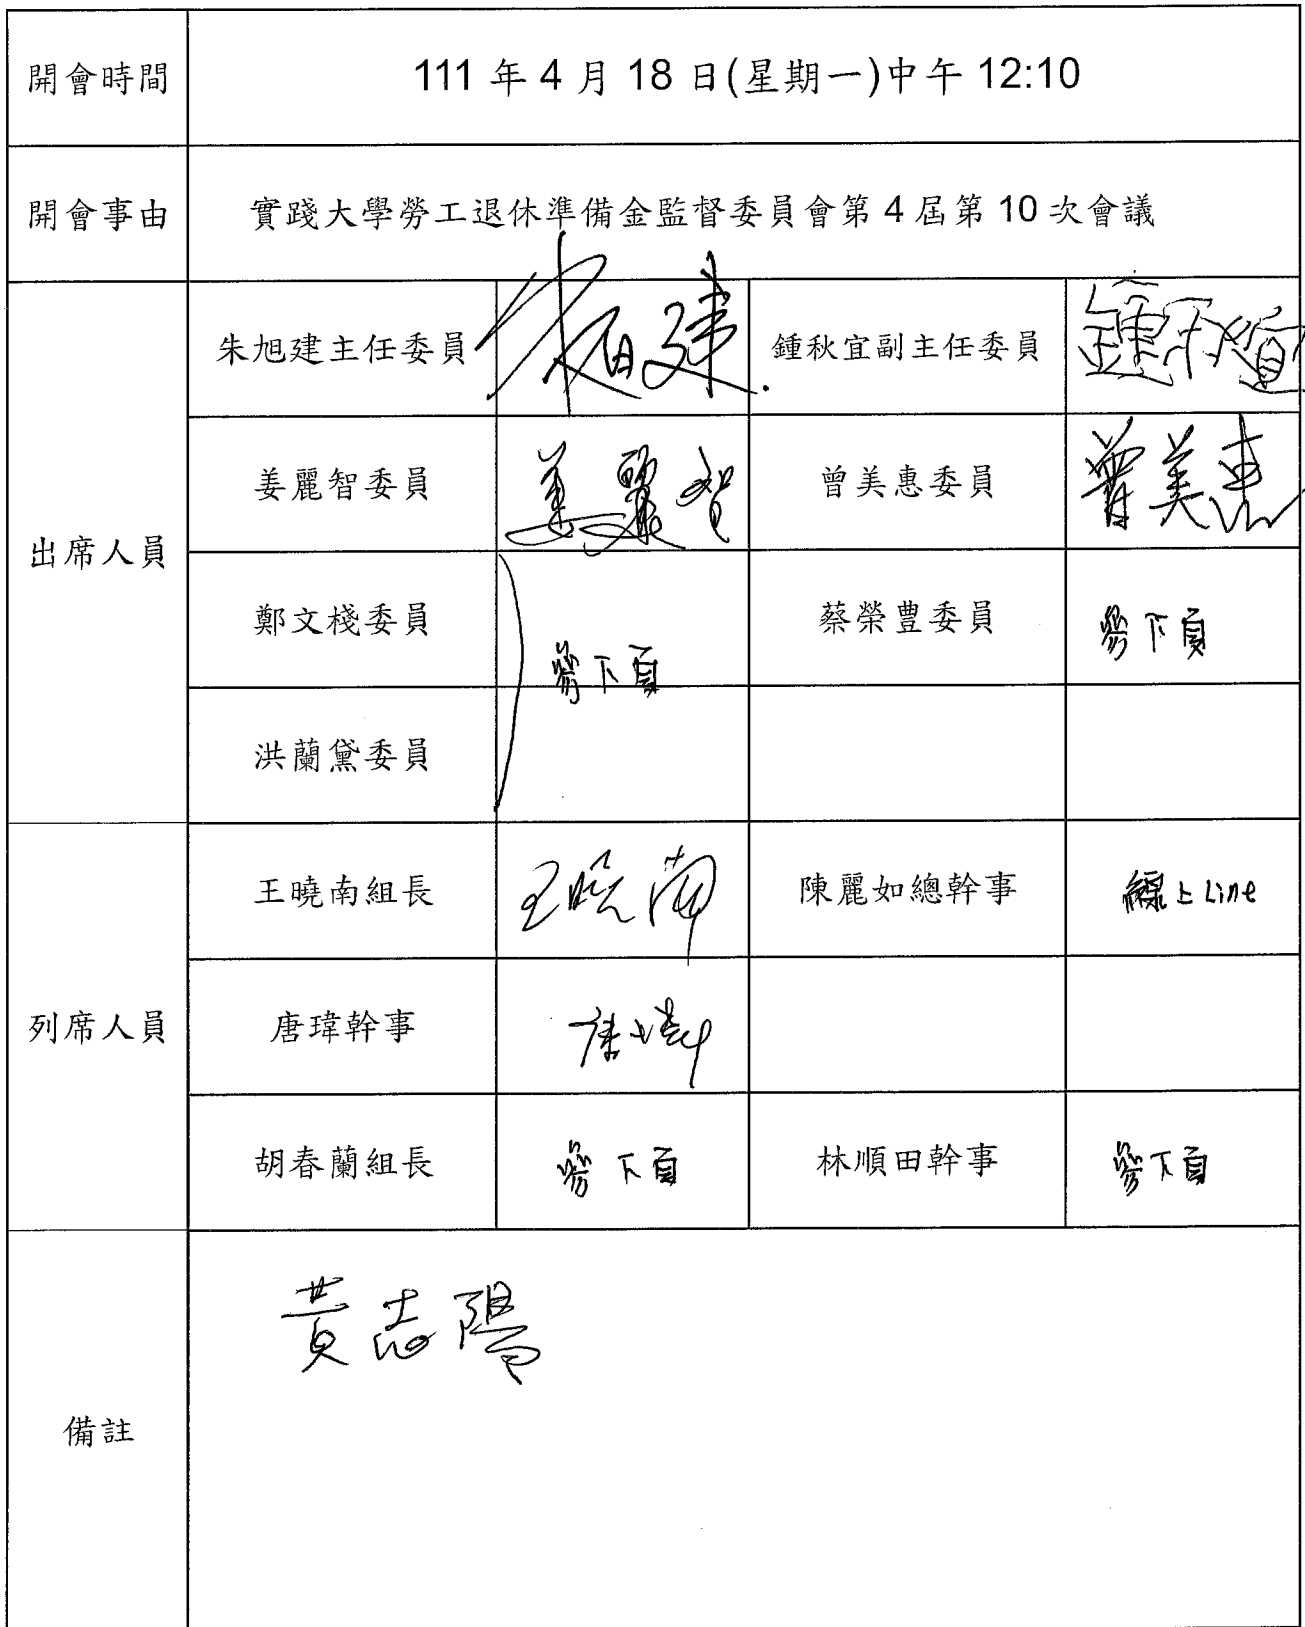 開會時間 111 年 4 月 18 日(星期一)中午 12:10
開會事由 實踐大學勞工退休準備金監督委員會第 4 屆第 10 次會議
出席人員
朱旭建主任委員 朱旭建 鍾秋宜副主任委員 鍾秋宜
姜麗智委員 姜麗智 曾美惠委員 曾美惠
鄭文棧委員 參下頁 蔡榮豊委員 參下頁
洪蘭黛委員
列席人員
王曉南組長 王曉南 陳麗如總幹事 線上Line
唐瑋幹事 唐瑋
胡春蘭組長 參下頁 林順田幹事 參下頁
備註
黃志陽